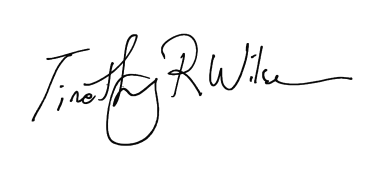 Timothy R. Wilson